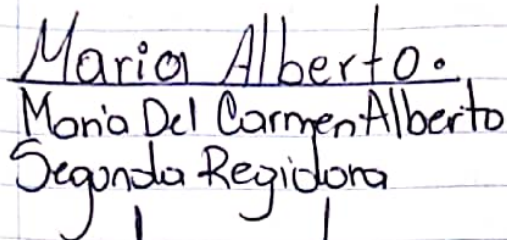 Maria Alberto.
María Del Carmen Alberto
Segunda Regidora